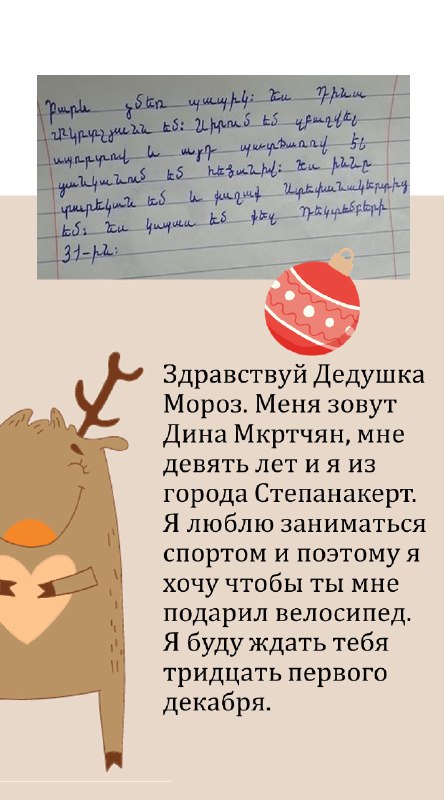 Բարև ձմեռ պապիկ։ Ես Դինա
Մկրտչյանն եմ։ Սիրում եմ զբաղվել
սպորտով և այդ պատճառով էլ
ցանկանում եմ հեծանիվ։ Ես ինը
տարեկան եմ և քաղաք Ստեփանակերտից
եմ։ Ես կսպաս եմ քեզ Դեկտեմբերի
31-ին։
Здравствуй Дедушка
Мороз. Меня зовут
Дина Мкртчян, мне
девять лет и я из
города Степанакерт.
Я люблю заниматься
спортом и поэтому я
хочу чтобы ты мне
подарил велосипед.
Я буду ждать тебя
тридцать первого
декабря.